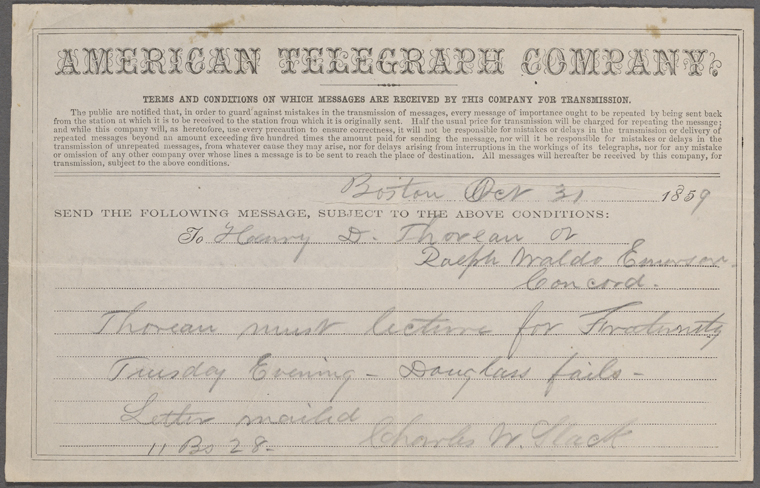 AMERICAN TELEGRAPH COMPANY.
TERMS AND CONDITIONS ON WHICH MESSAGES ARE RECEIVED BY THIS COMPANY FOR TRANSMISSION.
The public are notified that, in order to guard against mistakes in the transmission of messages, every message of importance ought to be repeated by being sent back
from the station at which it is to be received to the station from which it is originally sent. Half the usual price for transmission will be charged for repeating the message;
and while this company will, as heretofore, use every precaution to ensure correctness, it will not be responsible for mistakes or delays in the transmission or delivery of
repeated messages beyond an amount exceeding five hundred times the amount paid for sending the message, nor will it be responsible for mistakes or delays in the
transmission of unrepeated messages, from whatever cause they may arise, nor for delays arising from interruptions in the workings of its telegraphs, nor for any mistake
or omission of any other company over whose lines a message is to be sent to reach the place of destination. All messages will hereafter be received by this company, for
transmission, subject to the above conditions.
Boston Oct 31 1859
SEND THE FOLLOWING MESSAGE, SUBJECT TO THE ABOVE CONDITIONS:
To Henry D. Thoreau or
Ralph Waldo Emerson-
Concord-
Thoreau must lecture for Fraternity
Tuesday Evening - Douglass fails -
Letter mailed
11 Bs 28- Charles W. Slack